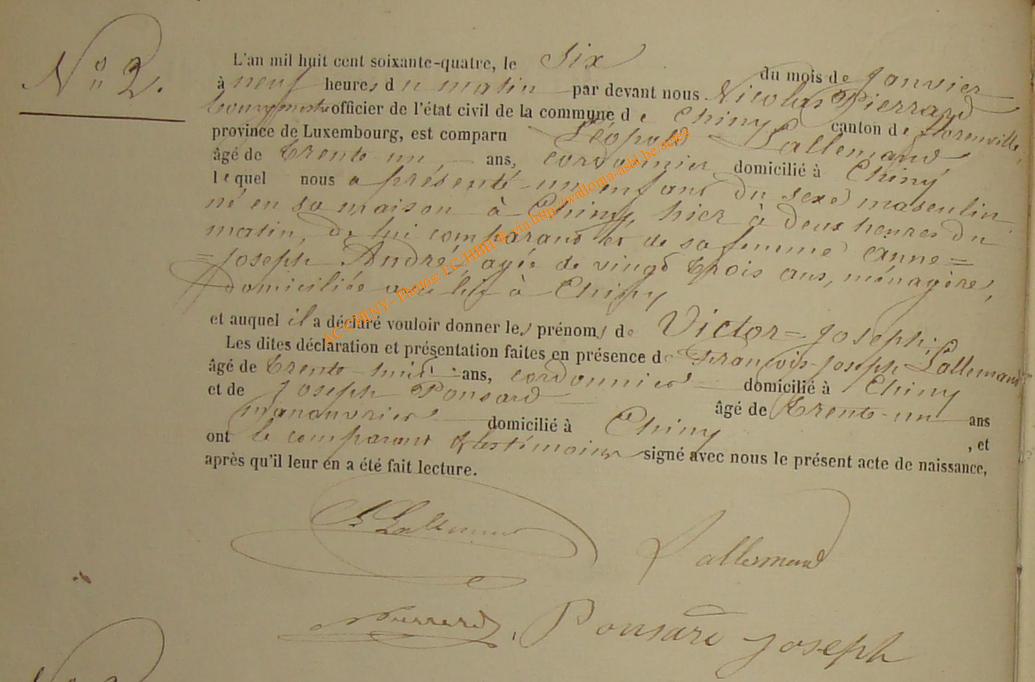 N° 2.
L'an mil huit cent soixante-quatre, le six du mois de Janvier
à neuf heures du matin par devant nous Nicolas Pierrard
Bourgmestre officier de l'état civil de la commune de Chiny canton de Florenville,
province de Luxembourg, est comparu Léopold Lallemand
âgé de trente-un ans, cordonnier domicilié à Chiny
lequel nous a présenté un enfant du sexe masculin
né en sa maison à Chiny, hier à deux heures du
matin, de lui comparant et de sa femme Anne=
=Joseph André, agée de vingt trois ans, ménagère,
domiciliée à Chiny
et auquel il a déclaré vouloir donner les prénoms de Victor=Joseph.
Les dites déclaration et présentation faites en présence de François-Joseph Lallemand
âgé de trente-huit ans, cordonnier domicilié à Chiny
et de Joseph Ponsard âgé de trente-un ans
manouvrier domicilié à Chiny, et
ont le comparant & les témoins signé avec nous le présent acte de naissance,
après qu'il leur en a été fait lecture.
Lallemand
Lallemand
NPierrard, Ponsard Joseph